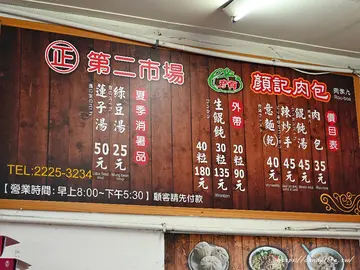 正 第二市場
夏季消暑品
綠豆湯 25元
蓮子湯 50元
TEL:2225-3234
【營業時間:早上8:00~下午5:30】 顧客請先付款
顏記肉包
價目表
肉包 35元
餛飩湯 45元
辣炒手 45元
意麵(乾) 40元
外帶
生餛飩
20粒90元
30粒135元
40粒180元